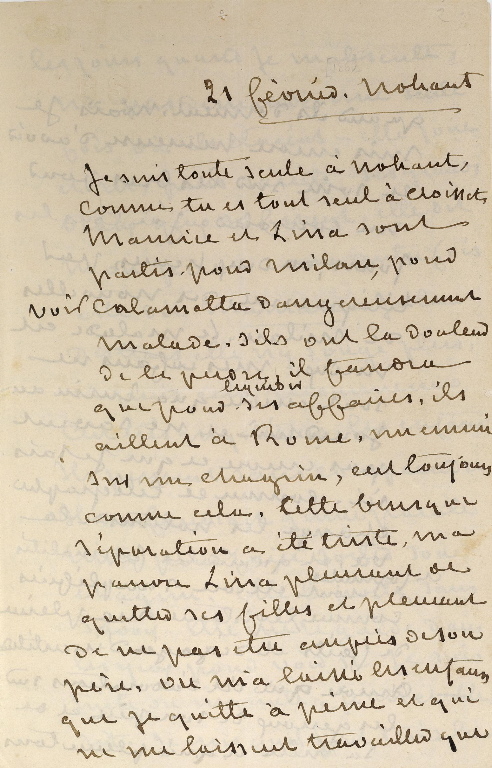 21 février. Nohant
Je suis toute seule à Nohant,
comme tu es tout seul à Croisset.
Maurice et Lina sont
partis pour Milan, pour
voir Calamatta dangereusement
malade. S'ils ont la douleur
de le perdre, il faudra
que pour liquider ses affaires, ils
aillent à Rome, un ennui
sur un chagrin, c'est toujours
comme cela. Cette brusque
séparation a été triste, ma
pauvre Lina pleurant de
quitter ses filles et pleurant
de ne pas être auprès de son
père. On m'a laissé les enfans
que je quitte à peine et qui
ne me laissent travailler que